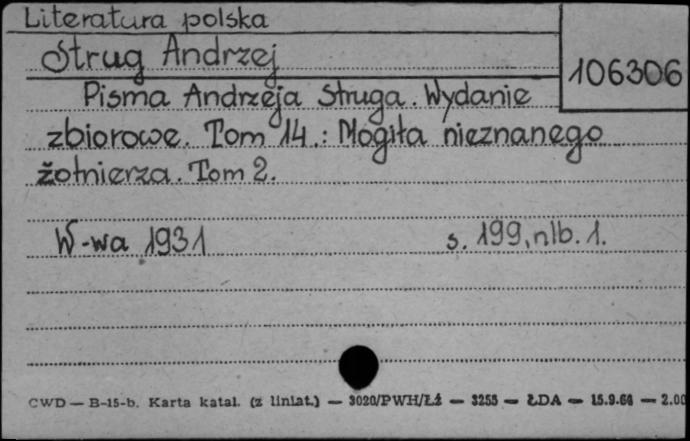 Literatura polska
Strug Andrzej
106306
Pisma Andrzeja Struga. Wydanie
zbiorowe. Tom 14.: Mogiła nieznanego
żołnierza. Tom 2.
W-wa 1931 s. 199, nlb. 1.
CWD — B-15-b. Karta katal. (z liniat.) — 3020/PWH/Łź — 3255 — ŁDA — 15.9.66 — 2.00